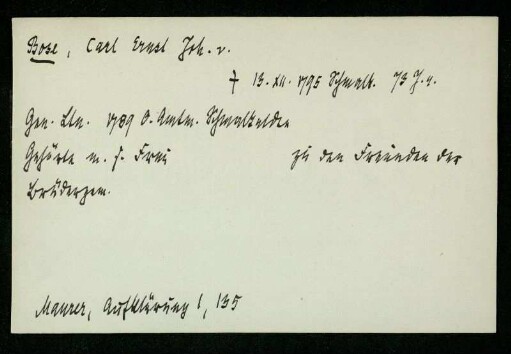 Bose, Carl Ernst Joh. v.
† 13. XII. 1795 Schmalk. 73 J. a.
Gen. Ltn. 1789 O. Amtm. Schmalkalden
Gehörte m. s. Frau zu den Freunden der
Brüdergem.
Maurer, Aufklärung 1, 135